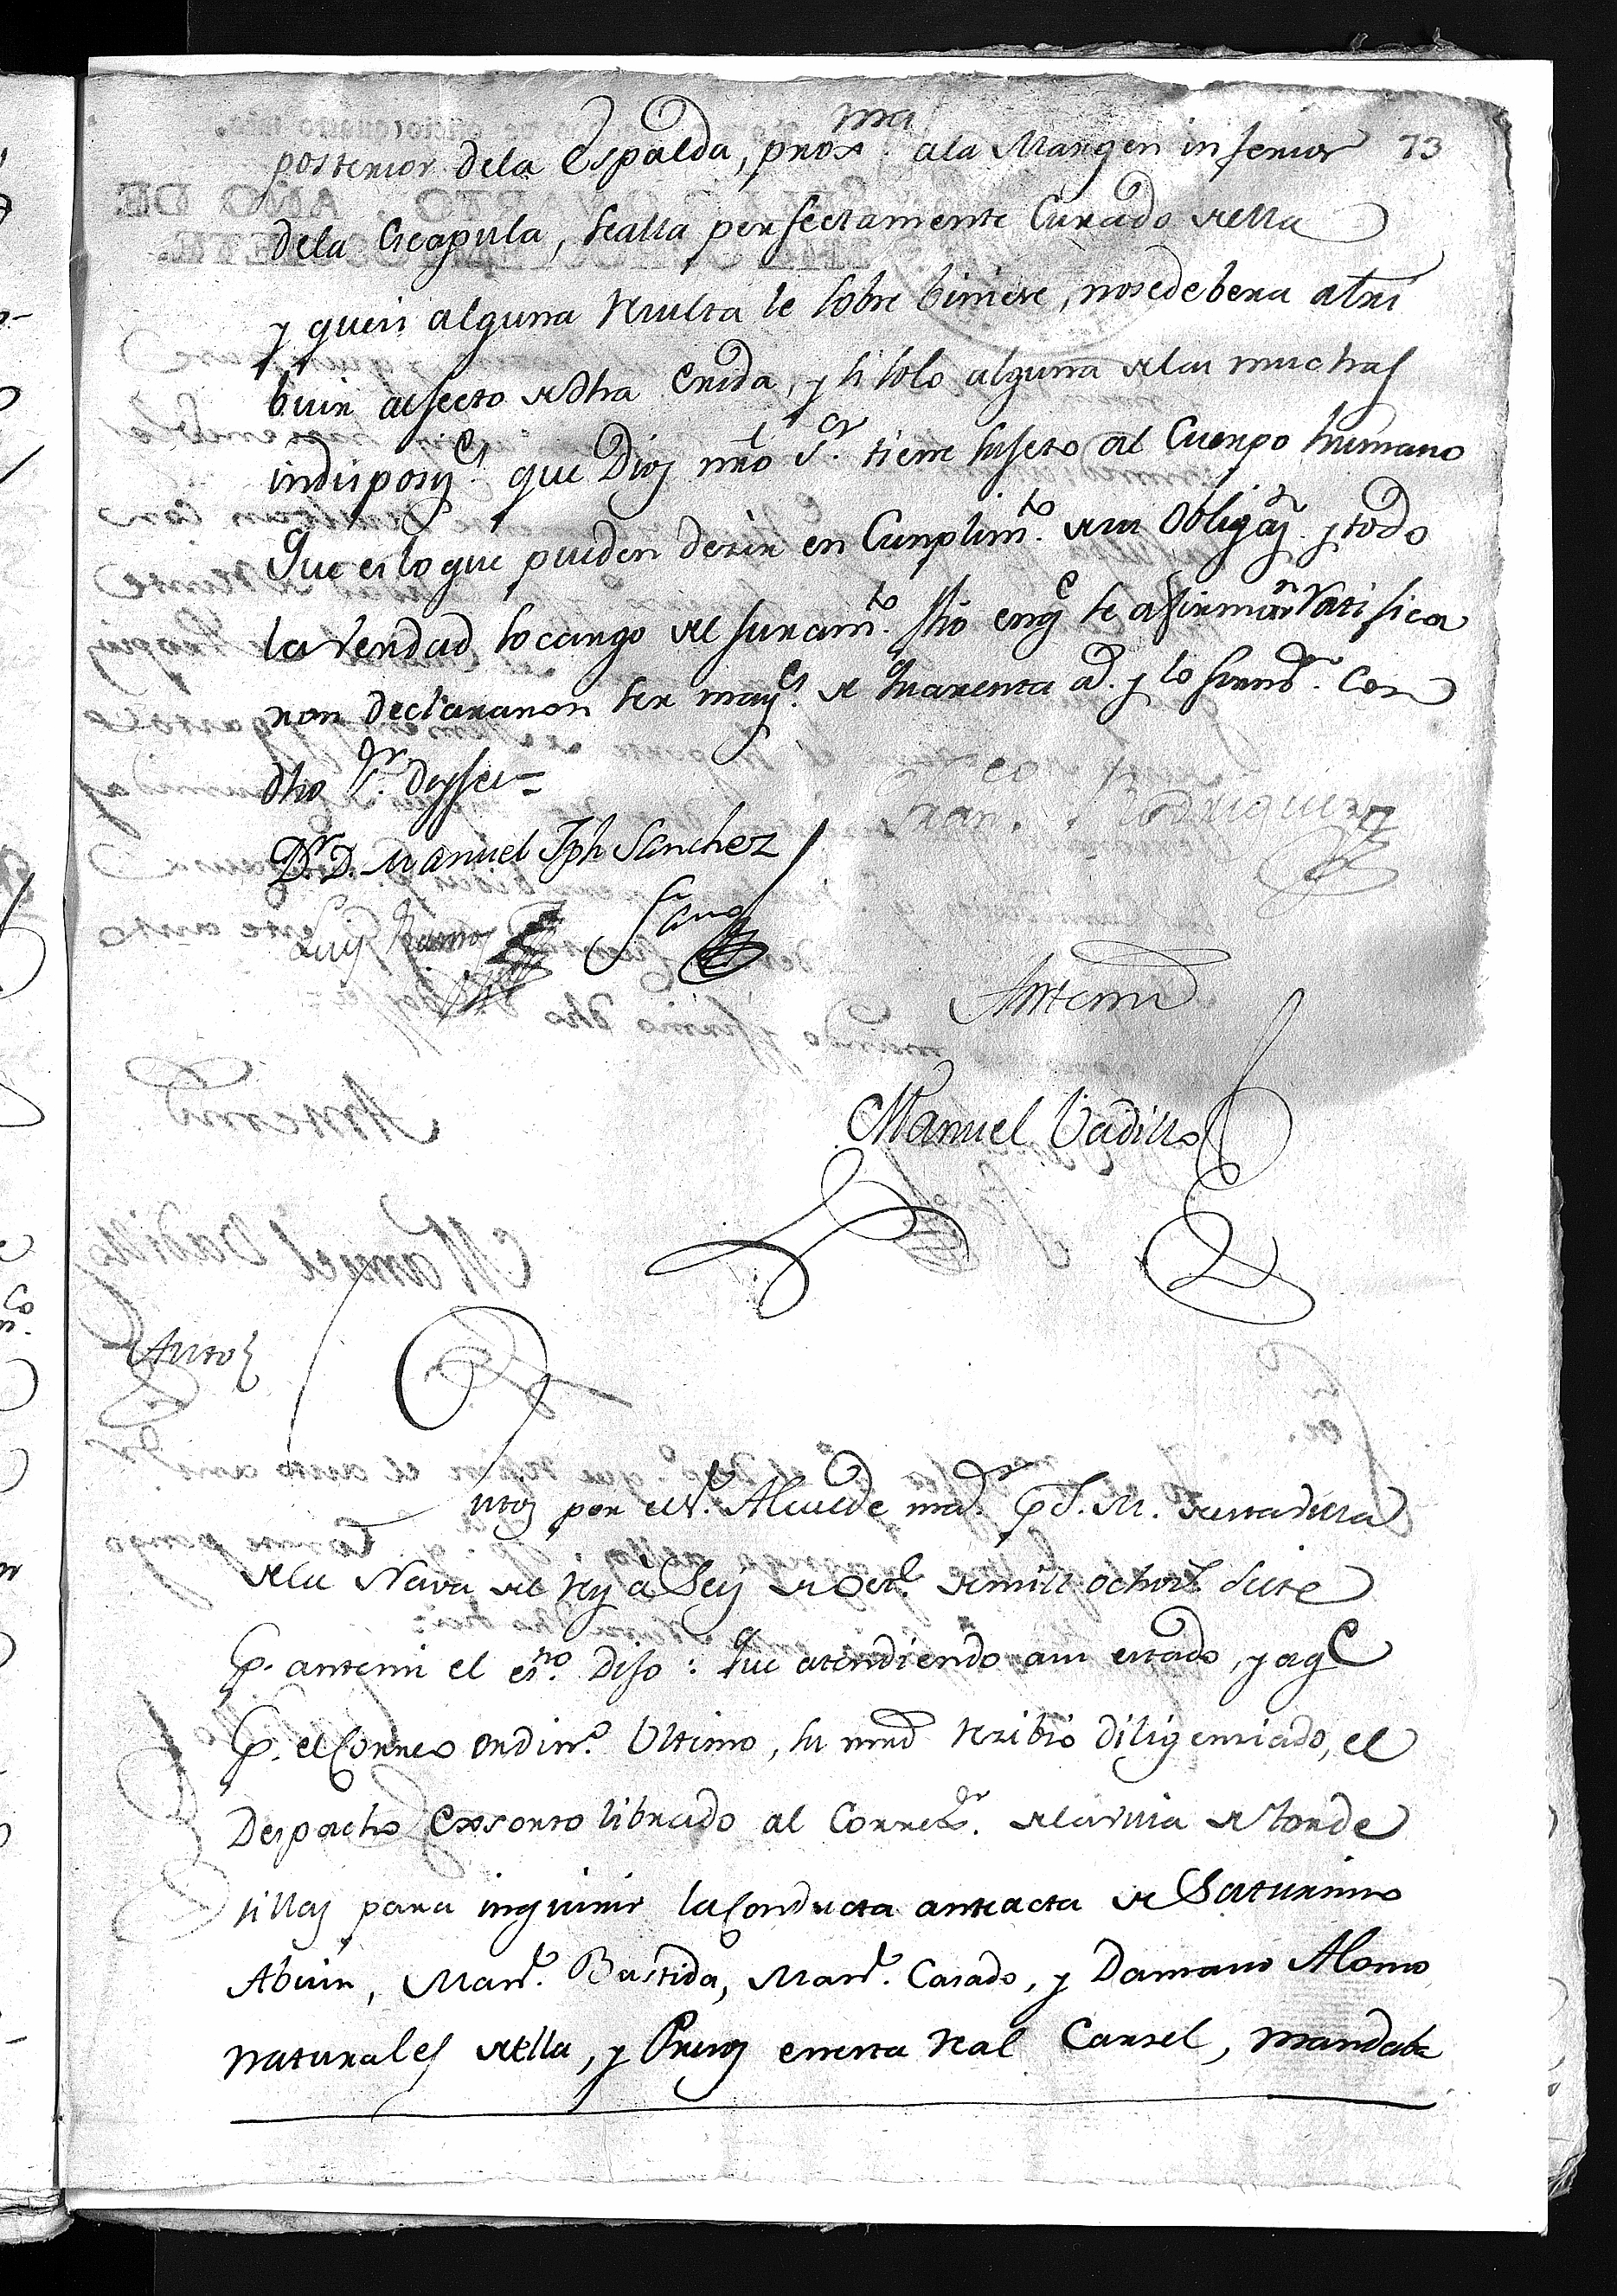 73
posterior dela Espalda, prox.ma ala Margen inferior
dela Escapula, sealla perfectamente Curado della
y quesi alguna resulta le sobre biniere, nosedebera atri
buir aefecto de dha Erida, y si solo alguna de las muchas
indisposiz.es que Dios nrõ S.or tiene sujeto al Cuerpo humano
Que es lo que pueden dezir en Cumplim.to de su Obligaz.n y todo
la verdad so cargo del juram.to fho en q.e se afirmaron Ratifica
ron declararon ser may.es de quarenta a.s y lo firmò. Con
dho S.or doy fee=
Fran.co Rodriguez
D.r D. Manuel Jph Sanchez
Luis Ramos
Sano
Antemi
Manuel Vadillo
Autos
utos por el S.r Alcalde ma.or p.r S. M. de esta villa
dela Nava del rey á Seis de Oct.e de mill ochoz.s Siete
p.r antemi el es.no Dijo: Que atendiendo a su estado, y a q.e
p.r el Correo ordin.o Ultimo, su mrd rezibió diligenciado, el
Despacho Exsorto librado al Correx.or dela villa de Torde
sillas para inquirir la Conducta anteacta de Saturnino
Abuin, Man.l Bastida, Man.l Casado, y Damaso Alonso
naturales della, y Presos en esta real Carsel, mandaba